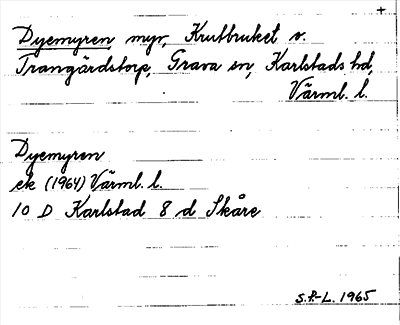 +
Dyemyren, myr, Krutbruket v.
Trangärdstorp, Grava sn, Karlstads hd,
Värml. l.
Dyemyren
ek (1964) Värml. l.
10 D Karlstad 8 d Skåre
S.P-L. 1965